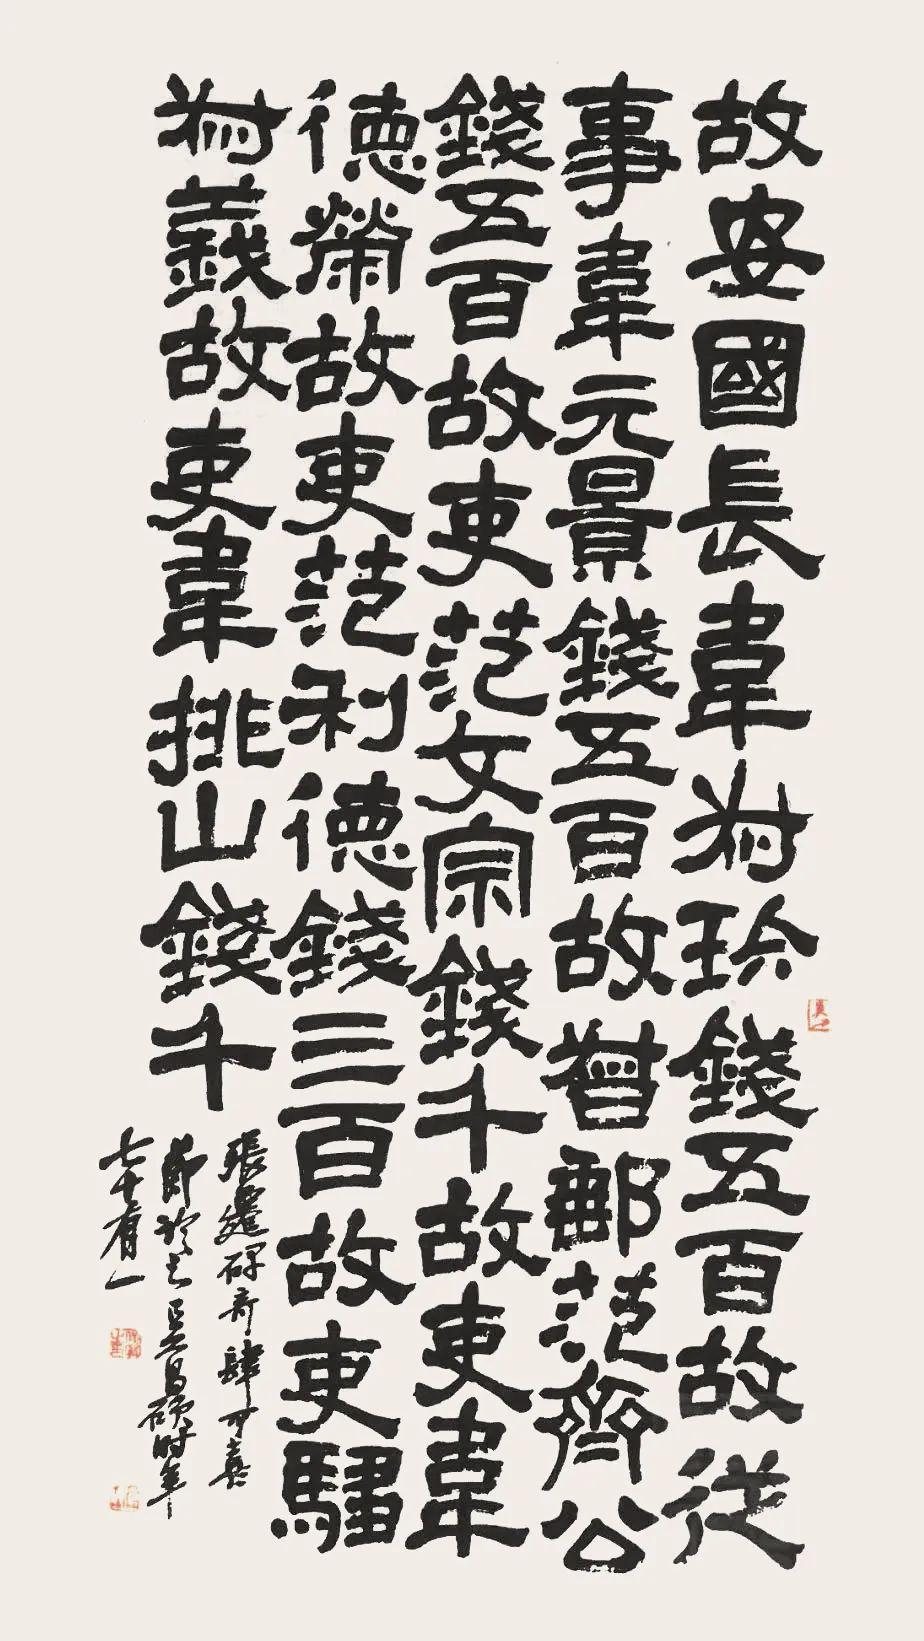 故安國長韋叔珍錢五百故從
事韋元景錢五百故督郵范齊公
錢五百故吏范文宗錢千故吏韋
德榮故吏范利德錢三百故吏驌
叔義故吏韋排山錢千
張遷碑奇肆可喜
節臨之吳昌碩時年
七十有一